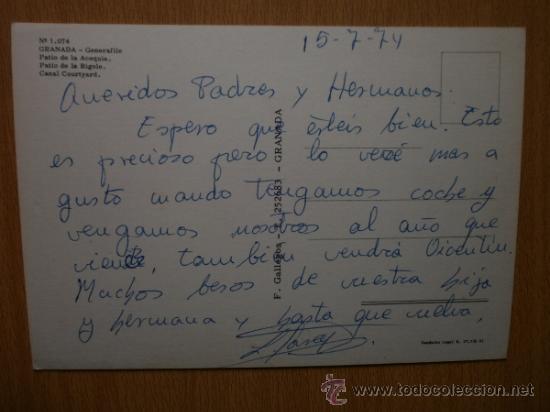 Nº 1.074
GRANADA - Generalife
Patio de la Acequia.
Patio de la Rigole.
Canal Courtyard.
15-7-74
Queridos Padres y Hermanos.
Espero que esteis bien. Esto
es precioso pero lo veré mas a
gusto cuando tengamos coche y
vengamos nosotros al año que
viene, tambien vendrá Vicentin.
Muchos besos de vuestra hija
y hermana y hasta que vuelva,
F. Gallegos - 252683 - GRANADA
todocoleccion
www.todocoleccion.net